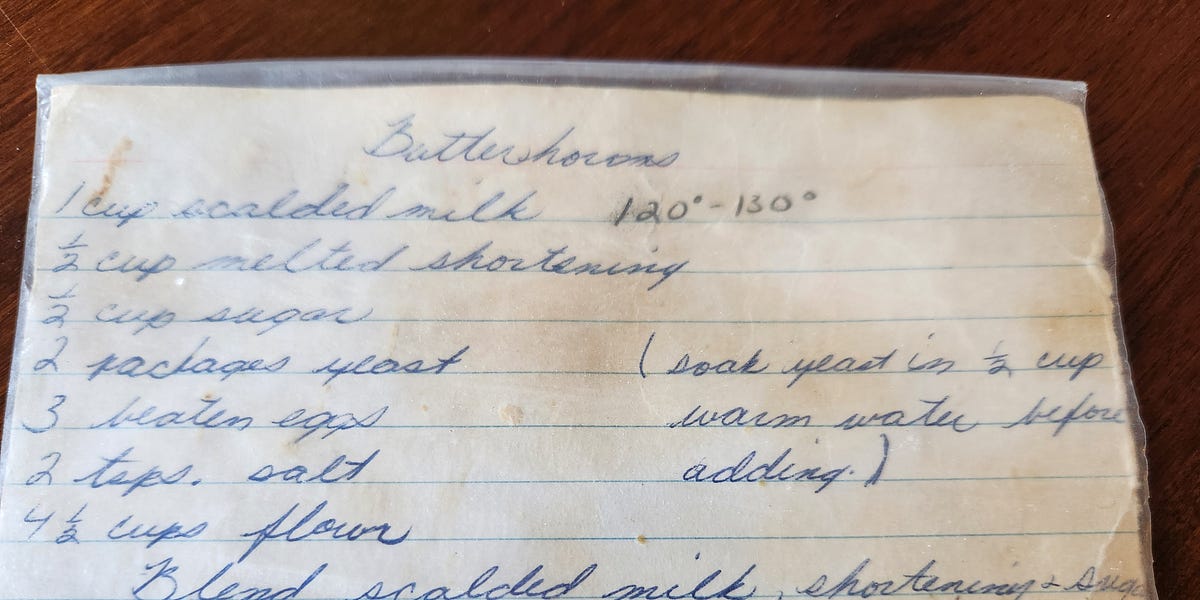 Butterhorns
1 cup scalded milk 120°-130°
½ cup melted shortening
½ cup sugar
2 packages yeast (soak yeast in ½ cup
3 beaten eggs warm water before
2 tsps. salt adding.)
4 ½ cups flour
Blend scalded milk, shortening &